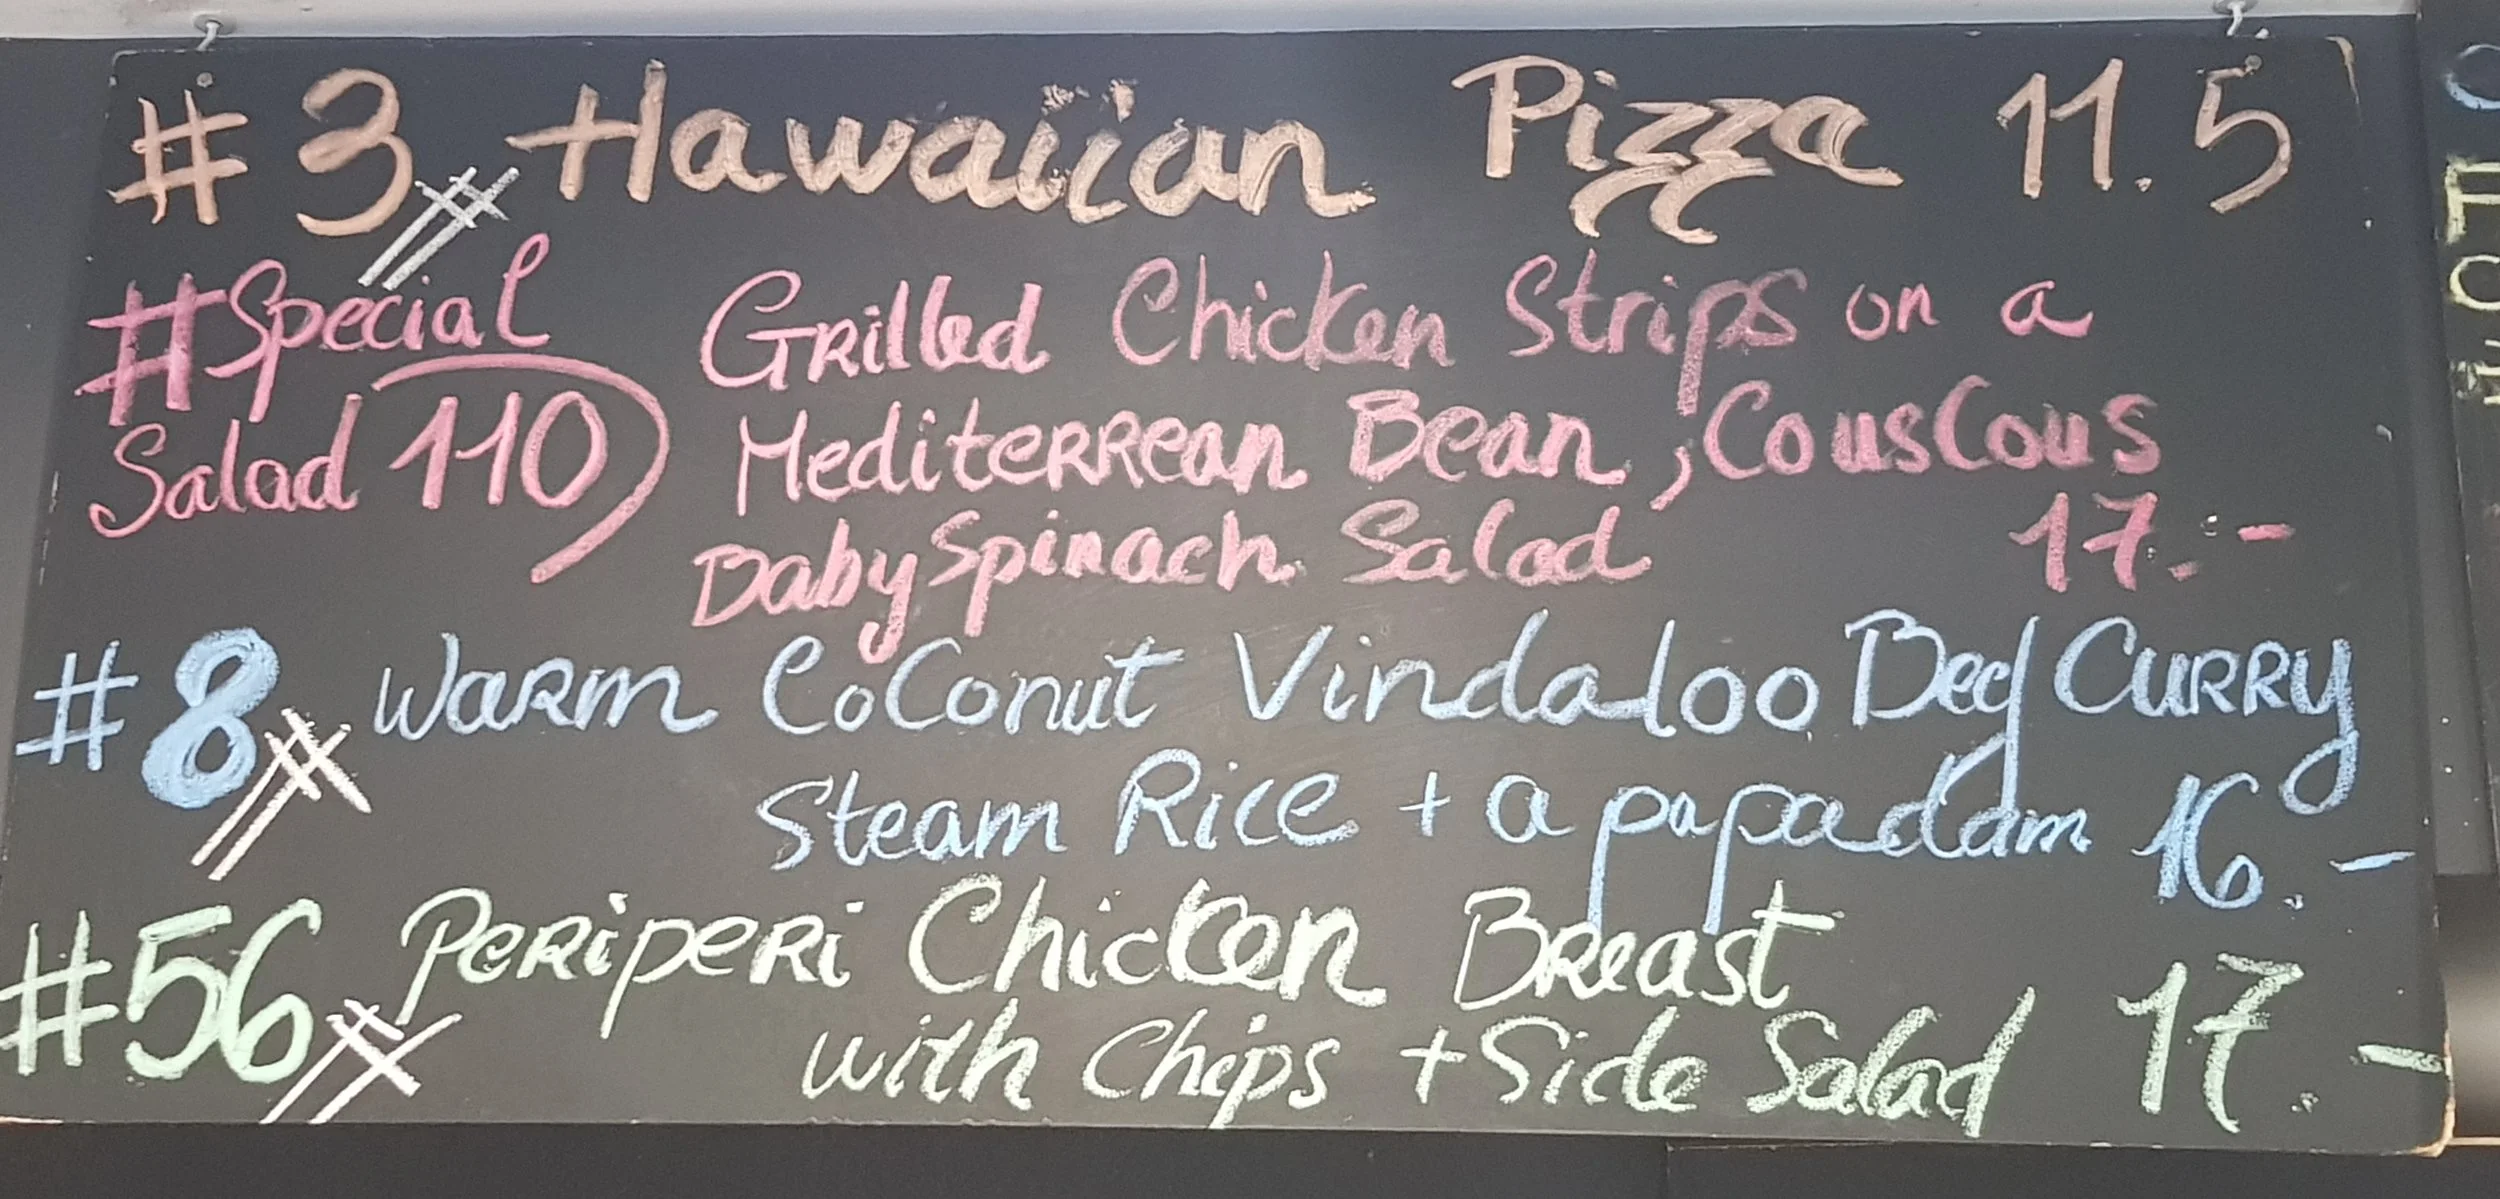 #3 Hawaiian Pizza 11.5
#Special Grilled Chicken Strips on a
Salad 110 Mediterrean Bean, CousCous
Baby Spinach Salad 17.-
#8 Warm CoConut Vindaloo Beef Curry
Steam Rice + a papadam 16.-
#56 Periperi Chicken Breast
with Chips + Side Salad 17.-